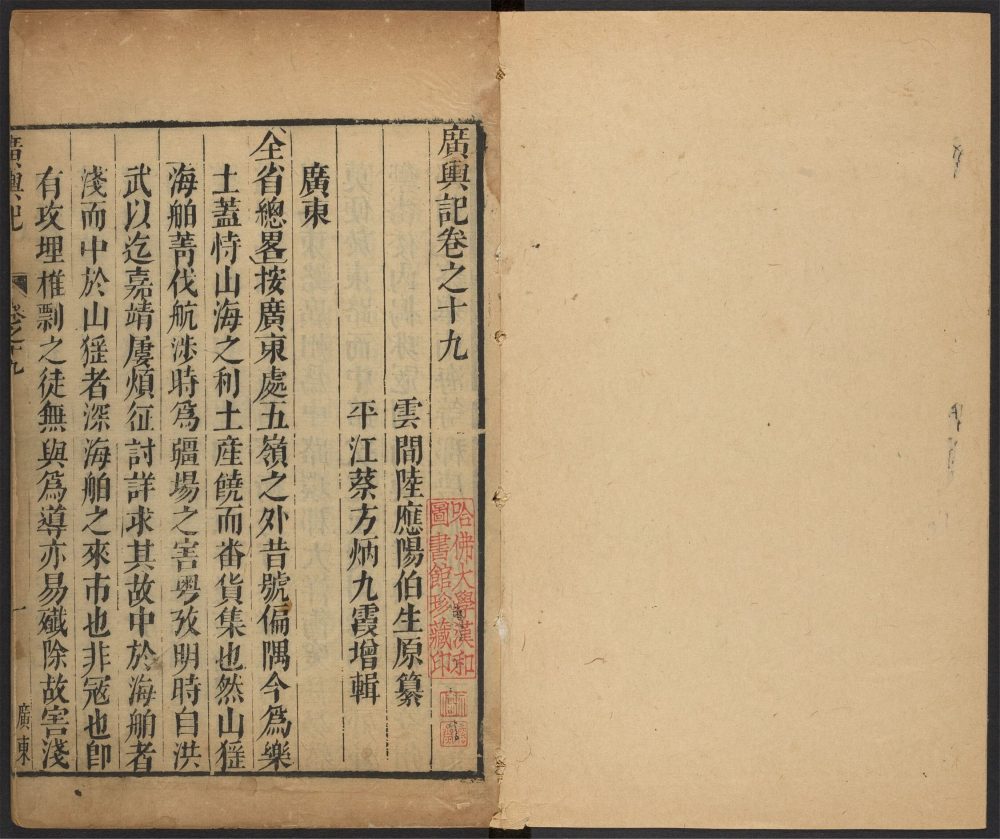 廣輿記卷之十九
雲間陸應陽伯生原纂
平江蔡方炳九霞增輯
廣東
全省總畧按廣東處五嶺之外昔號偏隅今爲樂
土蓋恃山海之利土産饒而番貨集也然山猺
海舶菁伐航涉時爲疆場之害粤攷明時自洪
武以迄嘉靖屢煩征討詳求其故中於海舶者
淺而中於山猺者深海舶之來市也非冦也卽
有攻埋椎剽之徒無與爲導亦易殱除故害淺
廣輿記
卷之十九
一
廣東
哈佛大學漢和
圖書館珍藏印